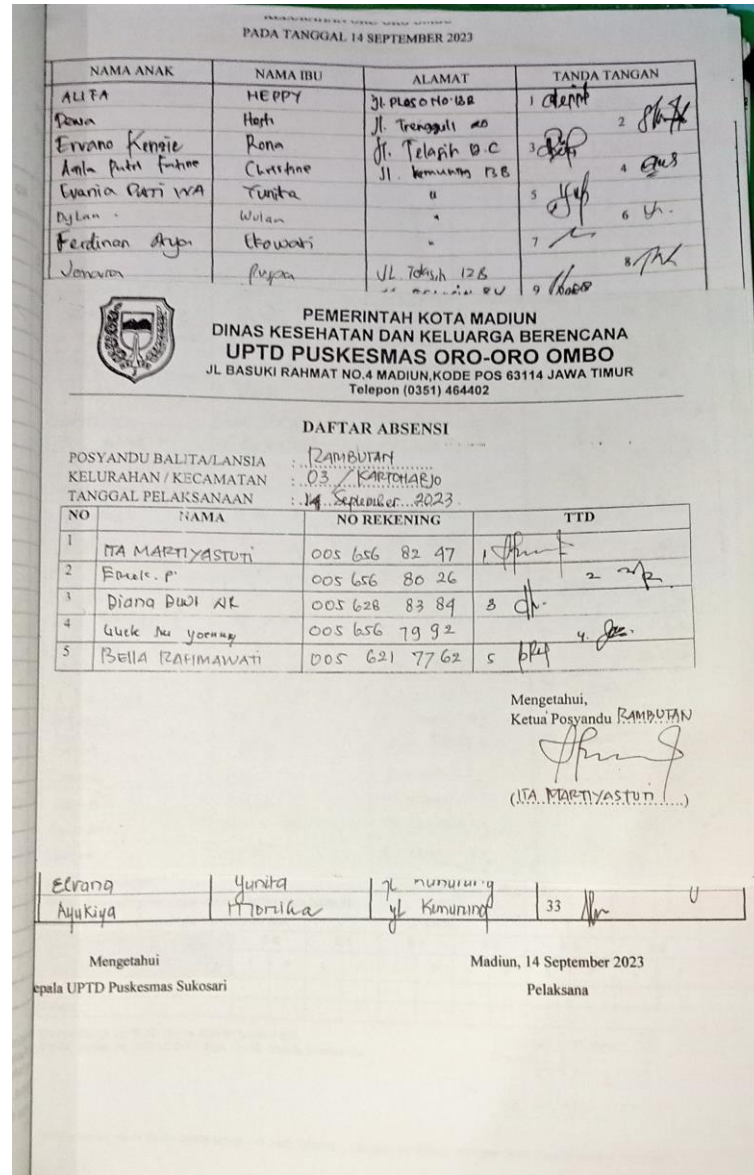 PADA TANGGAL 14 SEPTEMBER 2023
NAMA ANAK NAMA IBU ALAMAT TANDA TANGAN
ALIFA HEPPY Jl. PLOSO NO. 1
Dewa Hesti Jl. Trengguli 2
Ervano Kenzie Rona Jl. Telasih 3
Putri Christine Jl. Kemuning 13B 4
Evania Yunita " 5
Dylan Wulan " 6
Ferdinan Arya Ekowati " 7
Puspa JL. 12B 8
9
PEMERINTAH KOTA MADIUN
DINAS KESEHATAN DAN KELUARGA BERENCANA
UPTD PUSKESMAS ORO-ORO OMBO
JL BASUKI RAHMAT NO.4 MADIUN,KODE POS 63114 JAWA TIMUR
Telepon (0351) 464402
DAFTAR ABSENSI
POSYANDU BALITA/LANSIA : RAMBUTAN
KELURAHAN / KECAMATAN : 03 / KARTOHARJO
TANGGAL PELAKSANAAN : 14 September 2023
NO NAMA NO REKENING TTD
1 ITA MARTIYASTUTI 005 656 82 47 1
2 Endek. P. 005 656 80 26 2
3 Diana DWI NR 005 628 83 84 3
4 005 656 79 92 4.
5 BELLA RAHMAWATI 005 621 77 62 5
Mengetahui,
Ketua Posyandu RAMBUTAN
(ITA MARTIYASTUTI)
Yunita
Ayukiya Monika Jl Kemuning 33
Mengetahui Madiun, 14 September 2023
epala UPTD Puskesmas Sukosari Pelaksana